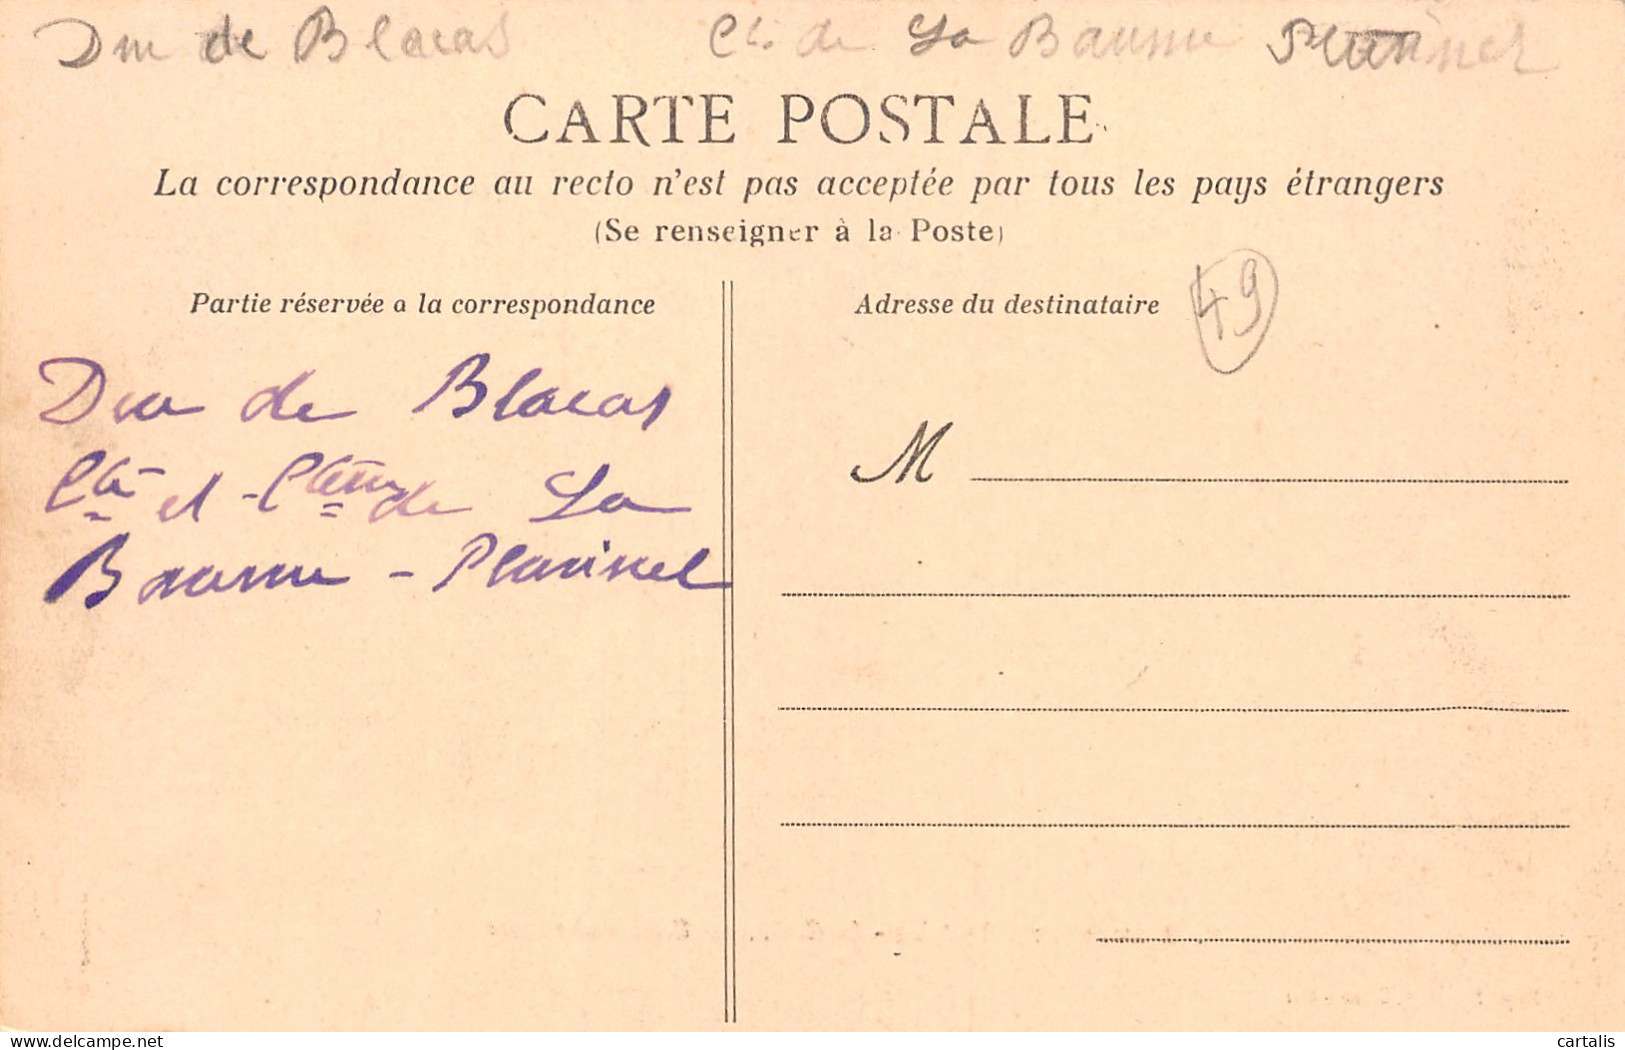 Duc de Blacas Cte de La Baume Pluvinel
CARTE POSTALE
La correspondance au recto n'est pas acceptée par tous les pays étrangers
(Se renseigner à la Poste)
Partie réservée a la correspondance
Adresse du destinataire
49
Duc de Blacas
Cte et Ctesse de La
Baume - Pluvinel
M
delcampe.net
cartalis